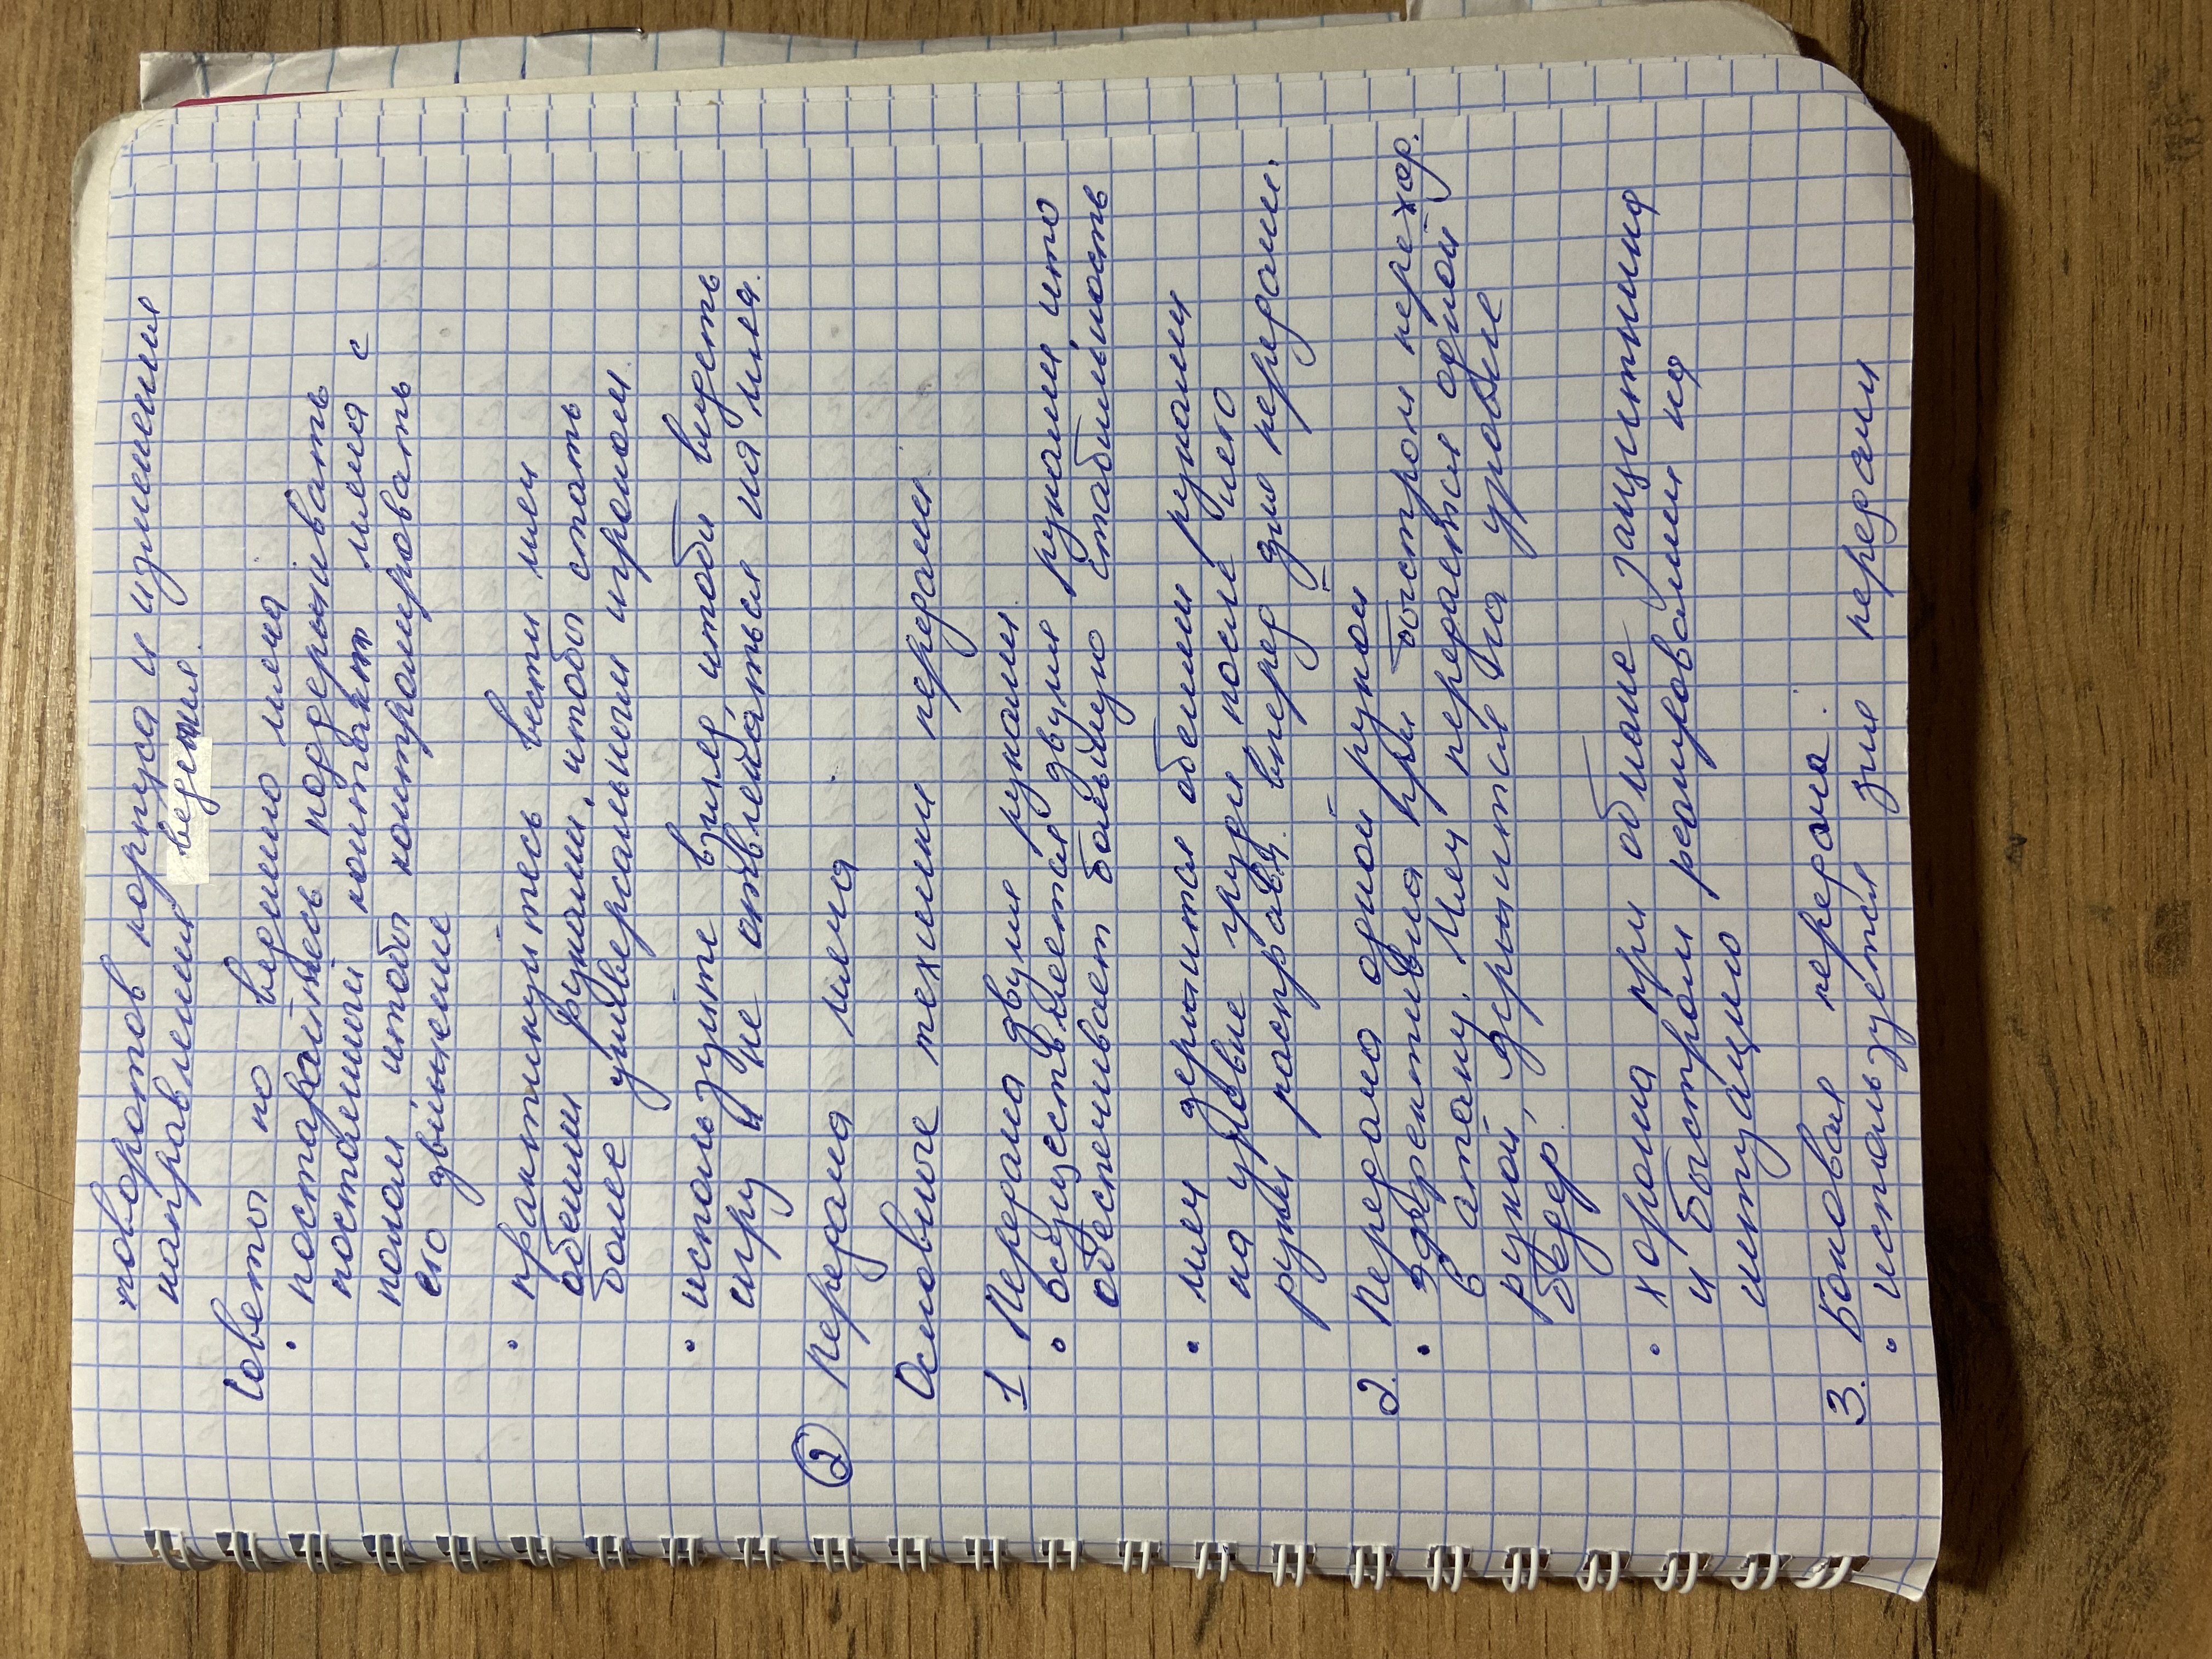 поворотов корпуса и изменения
направления ведения.
Советы по ведению мяча
• постарайтесь поддерживать
постоянный контакт мяча с
полом чтобы контролировать
его движение
• практикуйтесь вести мяч
обеими руками, чтобы стать
более универсальным игроком.
• используйте взгляд чтоби видеть
игру и не отвлекаться на мяч.
② Передача мяча.
Основные техники передачи.
1 Передача двумя руками.
• осуществляется двумя руками, что
обеспечивает большую стабильность
• мяч держится обеими руками
на уровне груди после чего
руки расправ. вперёд для передачи.
2. Передача одной рукой
• эффективна при быстром переход.
в атаку. Мяч передаётся одной
рукой, держится на уровне
бёдер.
• хороша при обмане защитника
и быстром реагировании на
ситуацию
3. Боковая передача.
• используется для передачи